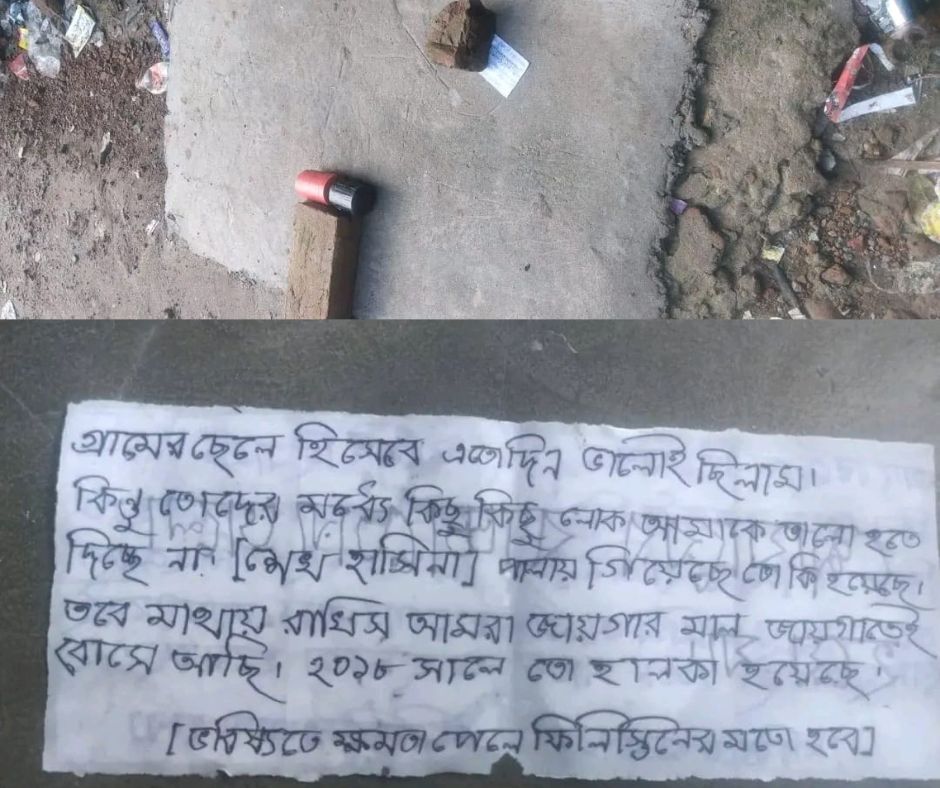 গ্রামের ছেলে হিসেবে এতোদিন ভালোই ছিলাম।
কিন্তু তোদের মর্ধ্যে কিছু কিছু লোক আমাকে ভালো হতে
দিচ্ছে না। [শেখ হাসিনা] পালায় গিয়েছে তো কি হয়েছে।
তবে মাথায় রাখিস আমরা জায়গার মাল জায়গাতেই
বোসে আছি। ২০১৮ সালে তো হালকা হয়েছে।
[ভবিষ্যতে ক্ষমতা পেলে ফিলিস্তিনের মতো হবে]